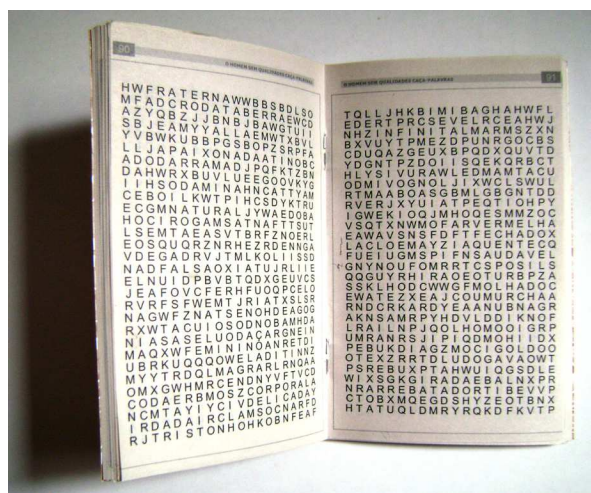 90
O HOMEM SEM QUALIDADES CAÇA-PALAVRAS
HWFRATERNAWWBBSBDLSO
MFADCRODATABERRAEWCD
AZYQBZJJBNBJBAWGTUII
SBJEAMYYALLAEMWTXBVL
YVBWKUBBPGSBOPZSRPFA
LLJAPAIXONADAATINOBC
ADODARRAMADJPQFKTZBN
DAHWRXBUVLUEEGOOVKYG
IIHSODAMINAHNCATTYAM
CEBOILKWTPIHCSDYKTRU
ECGMNATURALJYWAEDOBA
HOCIROGAMSATNAFTTSUT
LSEMTAEASVTBRFZNOERL
EOSQUQRZNRHEZRDENNGA
VDEGADRVJTMLKOLIISSD
NADFALSAOXIATUJRLIIE
ELNUIDPBVBTQDXGEUVCS
JEAFOVCFERHFUOQPCELO
RVRFSFWEMTJRIATXSLSR
NAGWFZNATSENOHDEAGOG
RXWTACUIOSODNOBAMHDA
NIASASELUODAÇARGNEIN
MAQXWFEMININOANRETDI
UBRKUQQQOWELADITINNZ
MYYTRDQLMAGRARLRNQAA
OMXGWHMRCENDNYVFTVCD
CODAERBMOSZCORPORALA
NCMTAYIYCIVDELICADAY
IRDADAIRCLAMSOCNARFD
RJTRISTONHOHKOBNFEAF
O HOMEM SEM QUALIDADES CAÇA-PALAVRAS
91
TQLLJHKBIMIBAGHAHWFL
EDERTPRCSEVELRCEAHWJ
NHZINFINITALMARMSZXN
BXVUYTPMEZDPUNRGOCBS
CDUQAZGEUXBPQDXQUVTD
YDGNTPZDOIISQEKQRBCT
HLYSIVURAWLEDMSTACWU
ODMIVOGNOLJIXWCLSWUL
RTMAABOASGBMLGBGNTDD
RVERJXYUIATPEQTIOHPY
IGWEKIOQJMHOQESMMZOC
VSQTXNWMOFARVERMELHA
EAWAVSNSFDFTFECHADOX
LACLOEMAYZIAQUENTECQ
FUEIUGMSPIFNSAUDAVEL
GNYNOUFOMRRTCSPOSILS
QQGUYRHIRAOEOTURBPZA
SSKLHODCWWGFMOLHADOC
EWATEZXEAJCOUMURCHAA
RNDCRKARDYEAANUBNAGR
AKNSAMRPYHDVLDDIKNOF
LRAILNPJQOLHOMOOIGRP
UMRANRSJIPIQDMOHIIDX
PEBUKDIAGZMOCIGOLDOO
OTEXZRRTDLUDOGAVAOWT
PSREBUXPTAHWUIQGSDLE
WIXSGKGIRADAEBALNXPR
NRARREBATADORTIBEVVP
CTOBXMQEGDSHYZEOTBNX
HTATUQLDMRYRQKDFKVTP